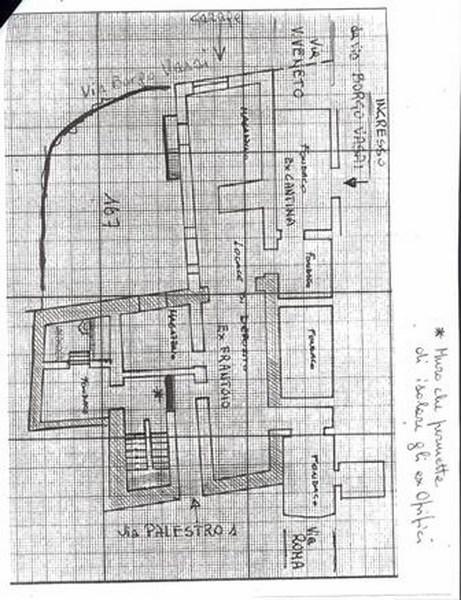 Garage
Via Borgo Vassai
Via
V. VENETO
INGRESSO
da via BORGO VASSAI
MAGAZZINO
FONDACO
EX CANTINA
167
FONDACO
LOCALE DI DEPOSITO
EX FRANTOIO
MAGAZZINO
FONDACO
FONDACO
*
* Muro che permette
di isolare gli ex Opifici
FONDACO
Via PALESTRO 1
Via
ROMA